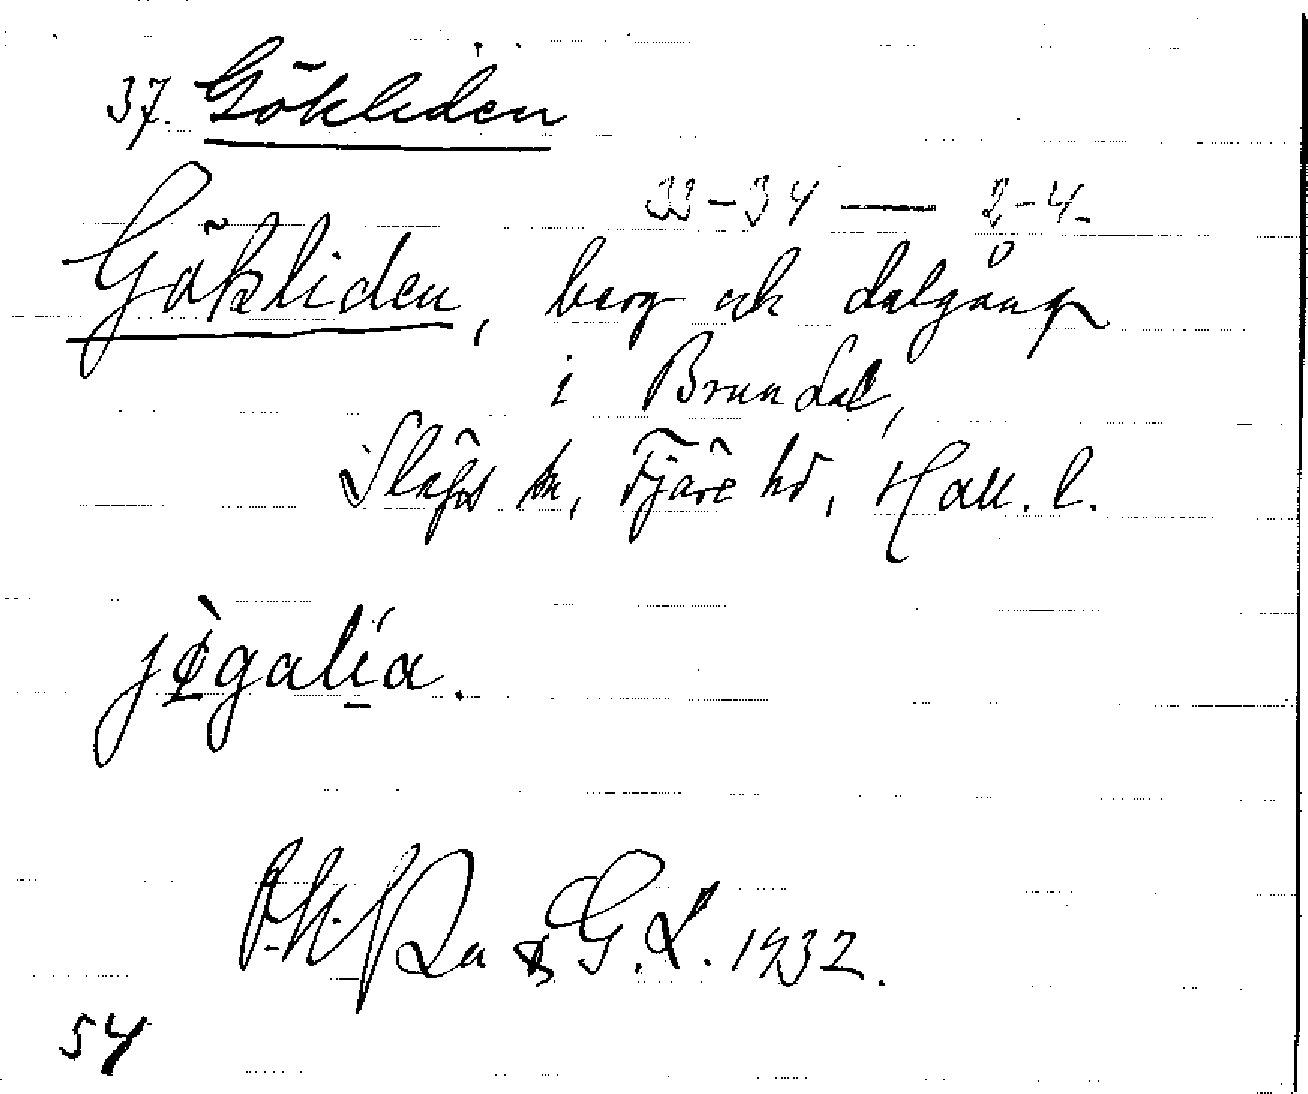 37. Gökliden
33-34 — 2-4.
Gökliden, berg och dalgång
i Brundal,
Släps sn, Fjäre hd, Hall. l.
jø̀galía.
& G. L. 1932.
54